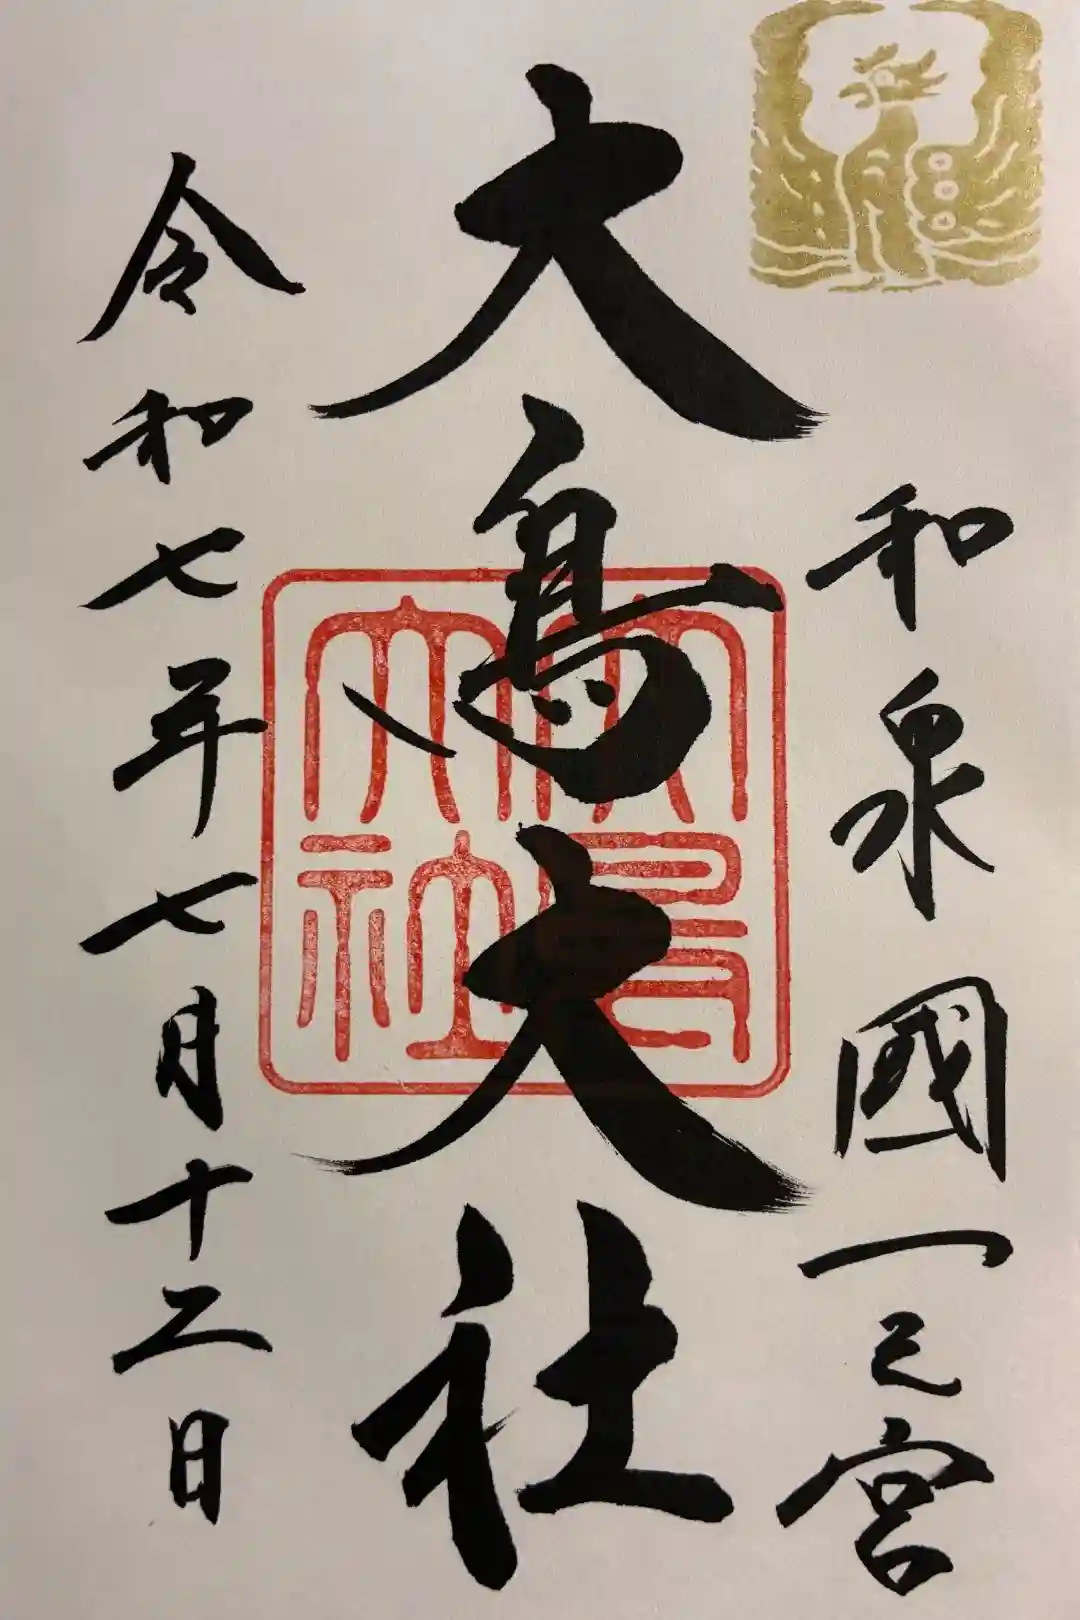 和泉國一之宮
大鳥大社
大鳥大社
令和七年七月十二日